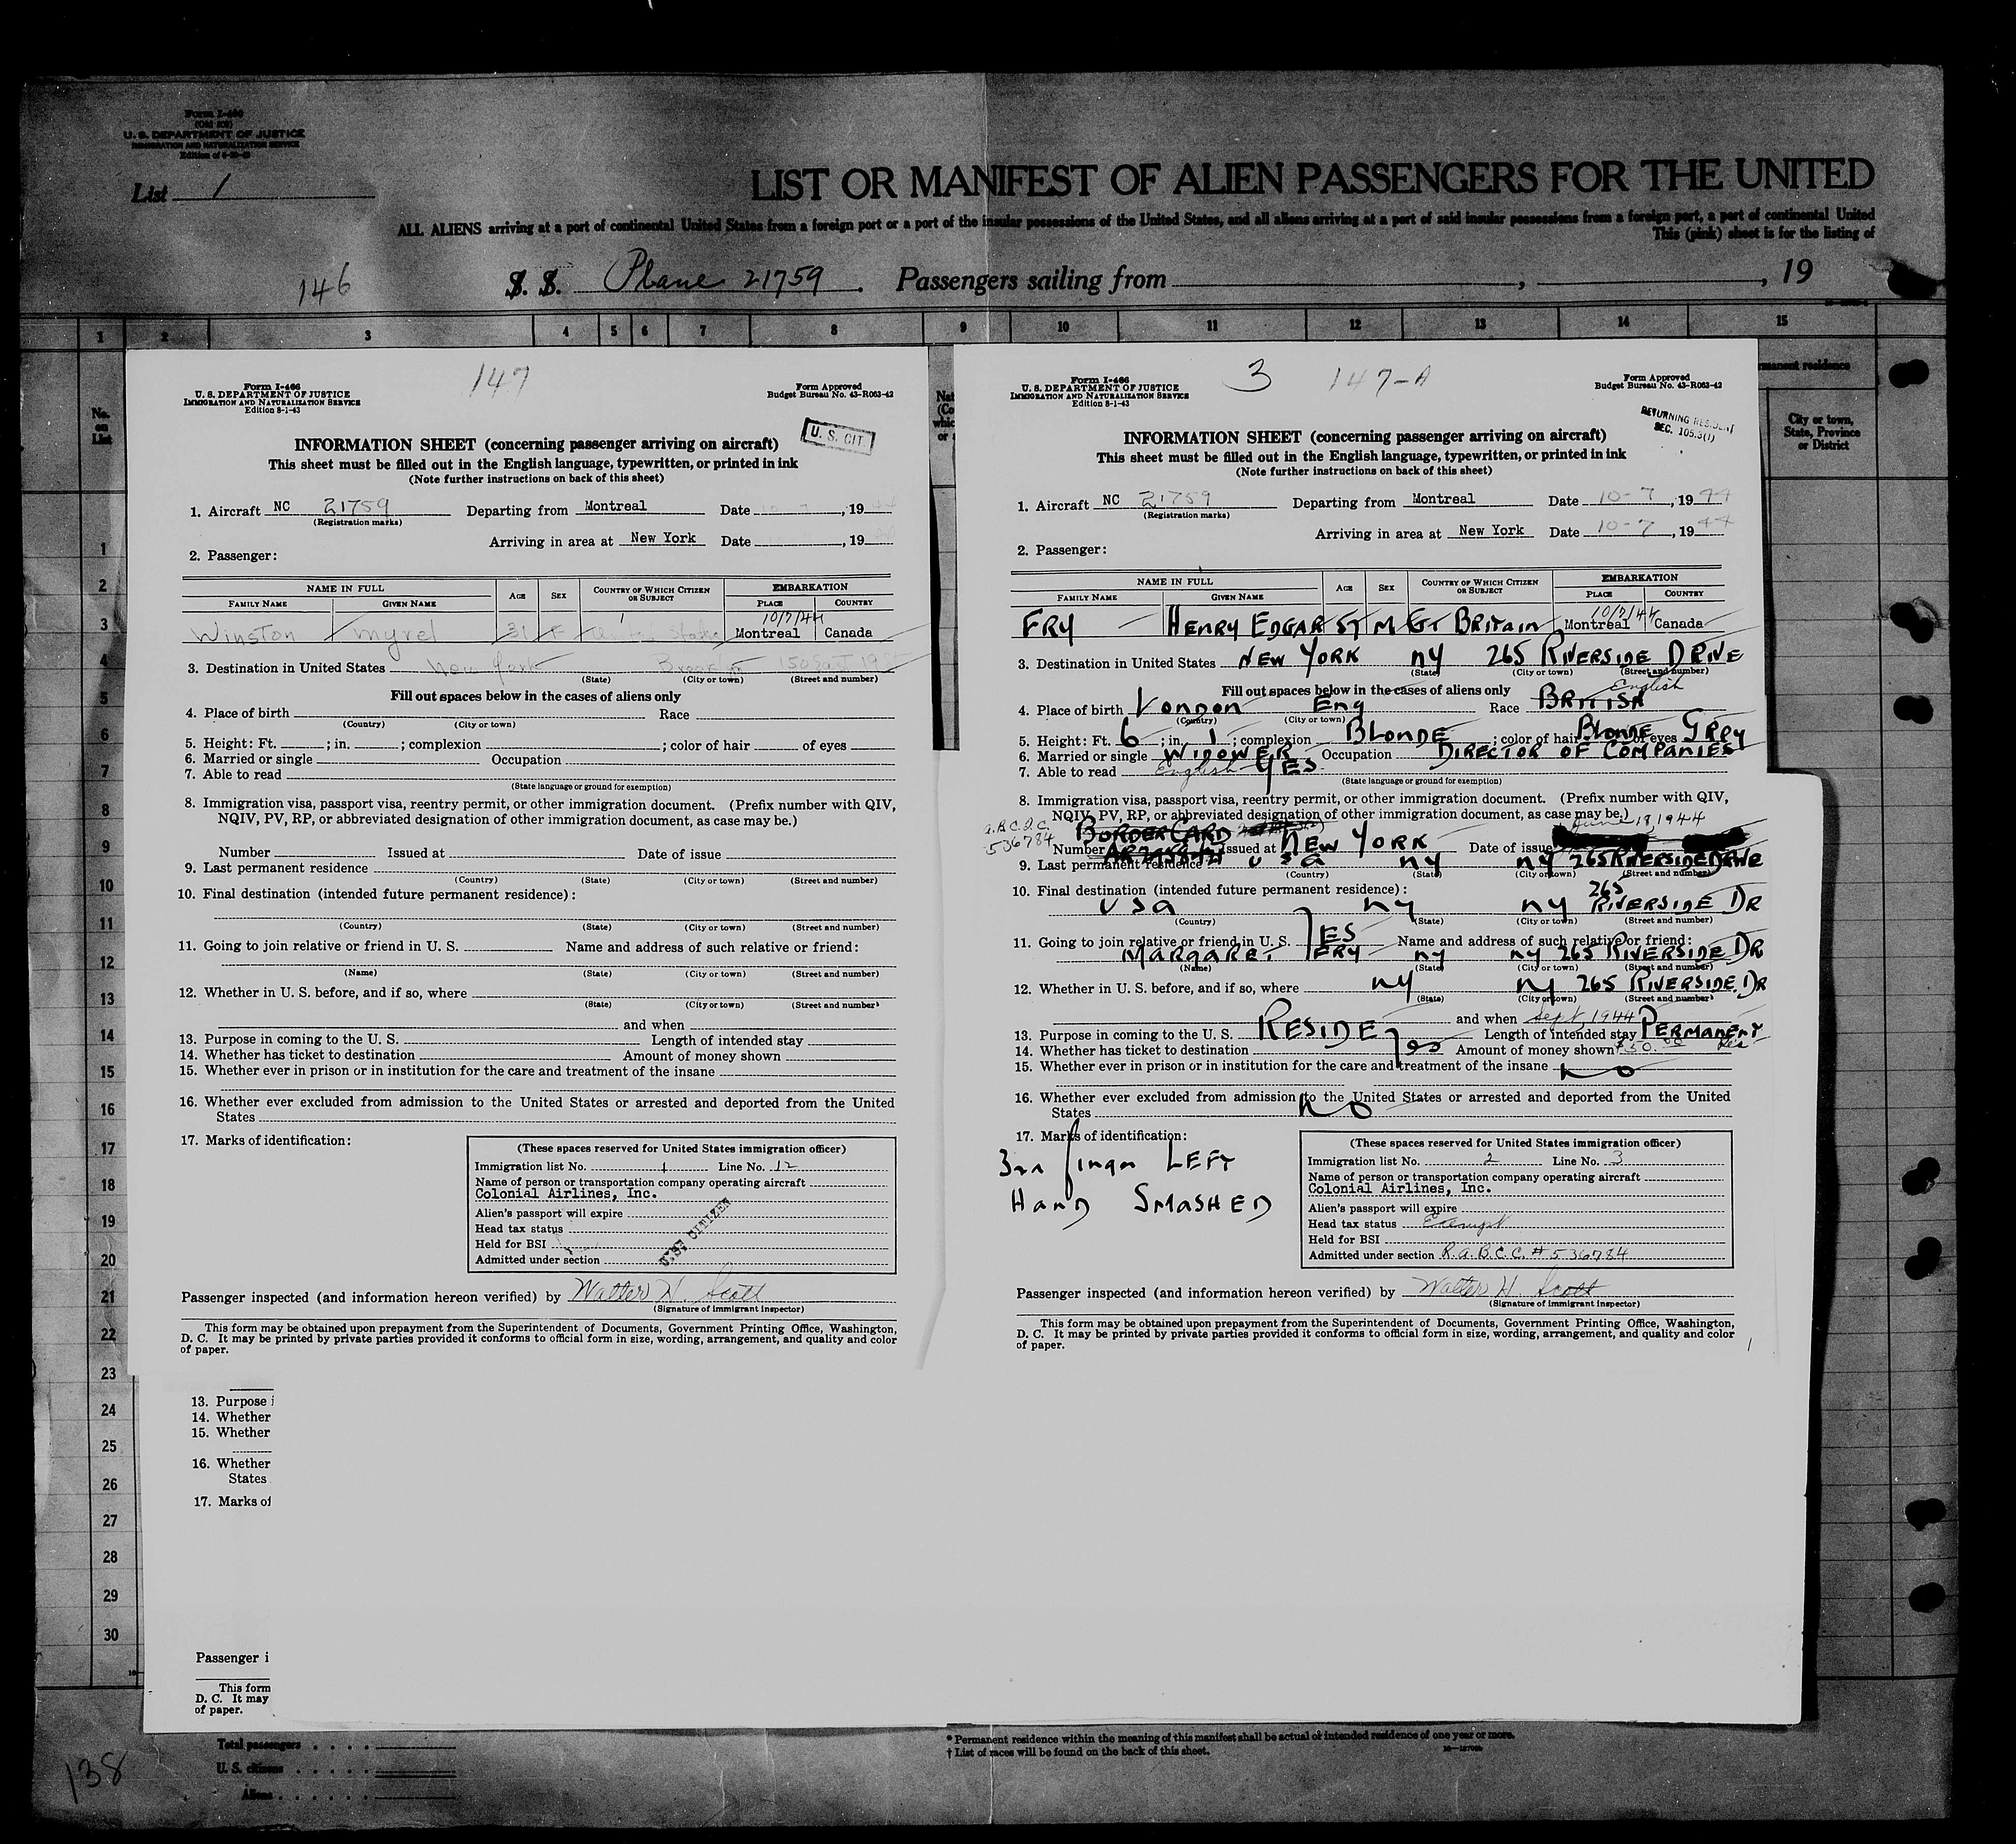 Form I-466
(Old 202)
U. S. DEPARTMENT OF JUSTICE
IMMIGRATION AND NATURALIZATION SERVICE
List 1
LIST OR MANIFEST OF ALIEN PASSENGERS FOR THE UNITED
ALL ALIENS arriving at a port of continental United States from a foreign port or a port of the insular possessions of the United States, and all aliens arriving at a port of said insular possessions from a foreign port, a port of continental United
This (pink) sheet is for the listing of
146 S. S. Plane 21759. Passengers sailing from , , 19
1 2 3 4 5 6 7 8 9 10 11 12 13 14 15
No. on List
manent residence
City or town, State, Province or District
147
Form I-466
U. S. DEPARTMENT OF JUSTICE
IMMIGRATION AND NATURALIZATION SERVICE
Edition 8-1-43
Form Approved
Budget Bureau No. 43-R063-42
U. S. CIT.
INFORMATION SHEET (concerning passenger arriving on aircraft)
This sheet must be filled out in the English language, typewritten, or printed in ink
(Note further instructions on back of this sheet)
1. Aircraft NC 21759 Departing from Montreal Date 10-7, 1944
(Registration marks)
Arriving in area at New York Date , 19
2. Passenger:
NAME IN FULL AGE SEX COUNTRY OF WHICH CITIZEN OR SUBJECT EMBARKATION
FAMILY NAME GIVEN NAME PLACE COUNTRY
10/7/44
Winston Myrel 31 F United States Montreal Canada
3. Destination in United States New York Brooklyn 150 East 19 St
(State) (City or town) (Street and number)
Fill out spaces below in the cases of aliens only
4. Place of birth Race
(Country) (City or town)
5. Height: Ft. ; in. ; complexion ; color of hair of eyes
6. Married or single Occupation
7. Able to read
(State language or ground for exemption)
8. Immigration visa, passport visa, reentry permit, or other immigration document. (Prefix number with QIV,
NQIV, PV, RP, or abbreviated designation of other immigration document, as case may be.)
Number Issued at Date of issue
9. Last permanent residence
(Country) (State) (City or town) (Street and number)
10. Final destination (intended future permanent residence):
(Country) (State) (City or town) (Street and number)
11. Going to join relative or friend in U. S. Name and address of such relative or friend:
(Name) (State) (City or town) (Street and number)
12. Whether in U. S. before, and if so, where
(State) (City or town) (Street and number)
and when
13. Purpose in coming to the U. S. Length of intended stay
14. Whether has ticket to destination Amount of money shown
15. Whether ever in prison or in institution for the care and treatment of the insane
16. Whether ever excluded from admission to the United States or arrested and deported from the United
States
17. Marks of identification:
(These spaces reserved for United States immigration officer)
Immigration list No. 1 Line No. 12
Name of person or transportation company operating aircraft
Colonial Airlines, Inc.
Alien's passport will expire
Head tax status
Held for BSI
Admitted under section
CITIZEN
Passenger inspected (and information hereon verified) by Walter H. Scott
(Signature of immigrant inspector)
This form may be obtained upon prepayment from the Superintendent of Documents, Government Printing Office, Washington,
D. C. It may be printed by private parties provided it conforms to official form in size, wording, arrangement, and quality and color
of paper.
3 147-A
Form I-466
U. S. DEPARTMENT OF JUSTICE
IMMIGRATION AND NATURALIZATION SERVICE
Edition 8-1-43
Form Approved
Budget Bureau No. 43-R063-42
RETURNING RESIDENT
SEC. 105.3(1)
INFORMATION SHEET (concerning passenger arriving on aircraft)
This sheet must be filled out in the English language, typewritten, or printed in ink
(Note further instructions on back of this sheet)
1. Aircraft NC 21759 Departing from Montreal Date 10-7, 1944
(Registration marks)
Arriving in area at New York Date 10-7, 1944
2. Passenger:
NAME IN FULL AGE SEX COUNTRY OF WHICH CITIZEN OR SUBJECT EMBARKATION
FAMILY NAME GIVEN NAME PLACE COUNTRY
10/7/44
FRY HENRY EDGAR 57 M GT BRITAIN Montreal Canada
3. Destination in United States NEW YORK NY 265 RIVERSIDE DRIVE
(State) (City or town) (Street and number)
Fill out spaces below in the cases of aliens only
English
4. Place of birth LONDON Eng Race BRITISH
(Country) (City or town)
5. Height: Ft. 6; in. 1; complexion BLONDE; color of hair BLONDE of eyes GREY
6. Married or single WIDOWER Occupation DIRECTOR OF COMPANIES
7. Able to read English YES
(State language or ground for exemption)
8. Immigration visa, passport visa, reentry permit, or other immigration document. (Prefix number with QIV,
NQIV, PV, RP, or abbreviated designation of other immigration document, as case may be.)
536784 BORDER CARD June 18, 1944
Number Issued at NEW YORK Date of issue
9. Last permanent residence USA NY NY 265 RIVERSIDE DRIVE
(Country) (State) (City or town) (Street and number)
10. Final destination (intended future permanent residence):
USA NY NY 265 RIVERSIDE DR
(Country) (State) (City or town) (Street and number)
11. Going to join relative or friend in U. S. YES Name and address of such relative or friend:
MARGARET FRY NY NY 265 RIVERSIDE DR
(Name) (State) (City or town) (Street and number)
12. Whether in U. S. before, and if so, where NY NY 265 RIVERSIDE DR
(State) (City or town) (Street and number)
and when Sept, 1944
13. Purpose in coming to the U. S. RESIDE Length of intended stay PERMANENT
14. Whether has ticket to destination Yes Amount of money shown $50.00 Res
15. Whether ever in prison or in institution for the care and treatment of the insane NO
16. Whether ever excluded from admission to the United States or arrested and deported from the United
States NO
17. Marks of identification:
3rd finger LEFT
HAND SMASHED
(These spaces reserved for United States immigration officer)
Immigration list No. 2 Line No. 3
Name of person or transportation company operating aircraft
Colonial Airlines, Inc.
Alien's passport will expire
Head tax status Exempt
Held for BSI
Admitted under section R.A.B.C.C. # 536784
Passenger inspected (and information hereon verified) by Walter H. Scott
(Signature of immigrant inspector)
This form may be obtained upon prepayment from the Superintendent of Documents, Government Printing Office, Washington,
D. C. It may be printed by private parties provided it conforms to official form in size, wording, arrangement, and quality and color
of paper.
1
2
3
4
5
6
7
8
9
10
11
12
13
14
15
16
17
18
19
20
21
22
23
24
25
26
27
28
29
30
13. Purpose i
14. Whether
15. Whether
16. Whether
States
17. Marks of
Passenger i
This form
D. C. It may
of paper.
Total passengers
U. S. citizens
Aliens
138
* Permanent residence within the meaning of this manifest shall be actual or intended residence of one year or more.
† List of races will be found on the back of this sheet.